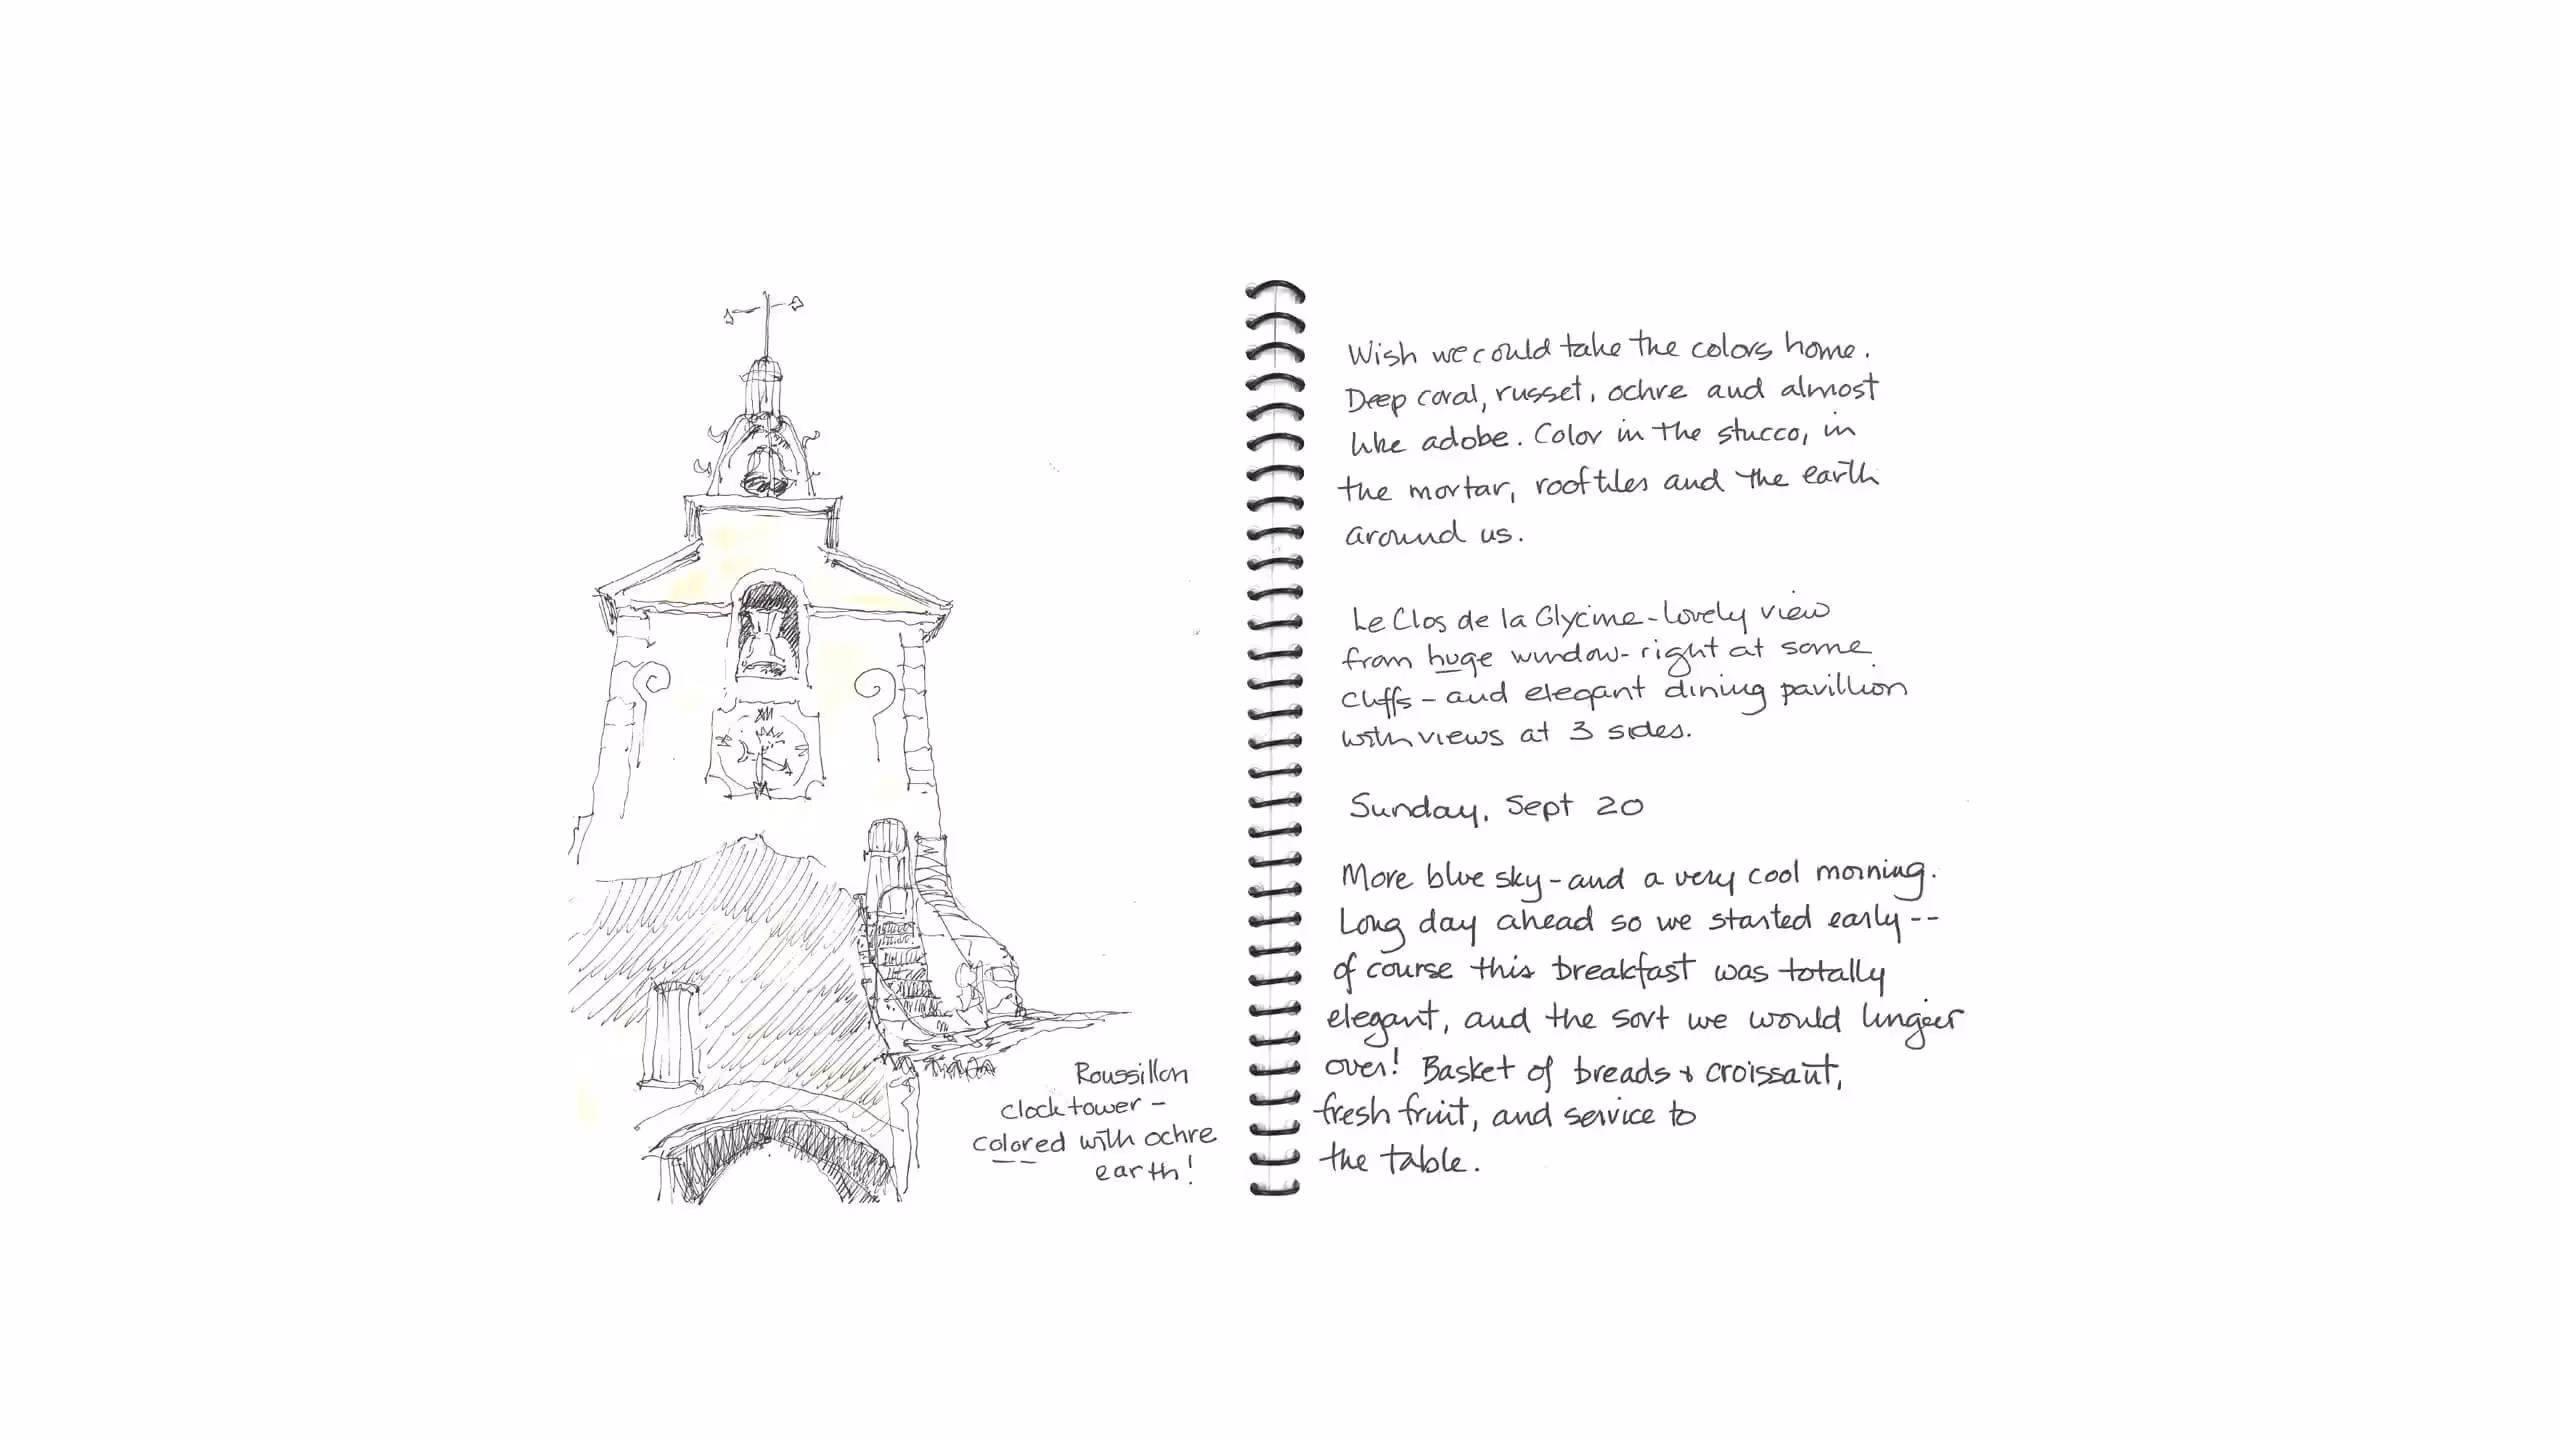 Roussillon
clock tower -
colored with ochre
earth!
Wish we could take the colors home.
Deep coral, russet, ochre and almost
like adobe. Color in the stucco, in
the mortar, roof tiles and the earth
around us.
Le Clos de la Glycine - lovely view
from huge window - right at some
cliffs - and elegant dining pavillion
with views at 3 sides.
Sunday, Sept 20
More blue sky - and a very cool morning.
Long day ahead so we started early --
of course this breakfast was totally
elegant, and the sort we would linger
over! Basket of breads & croissant,
fresh fruit, and service to
the table.